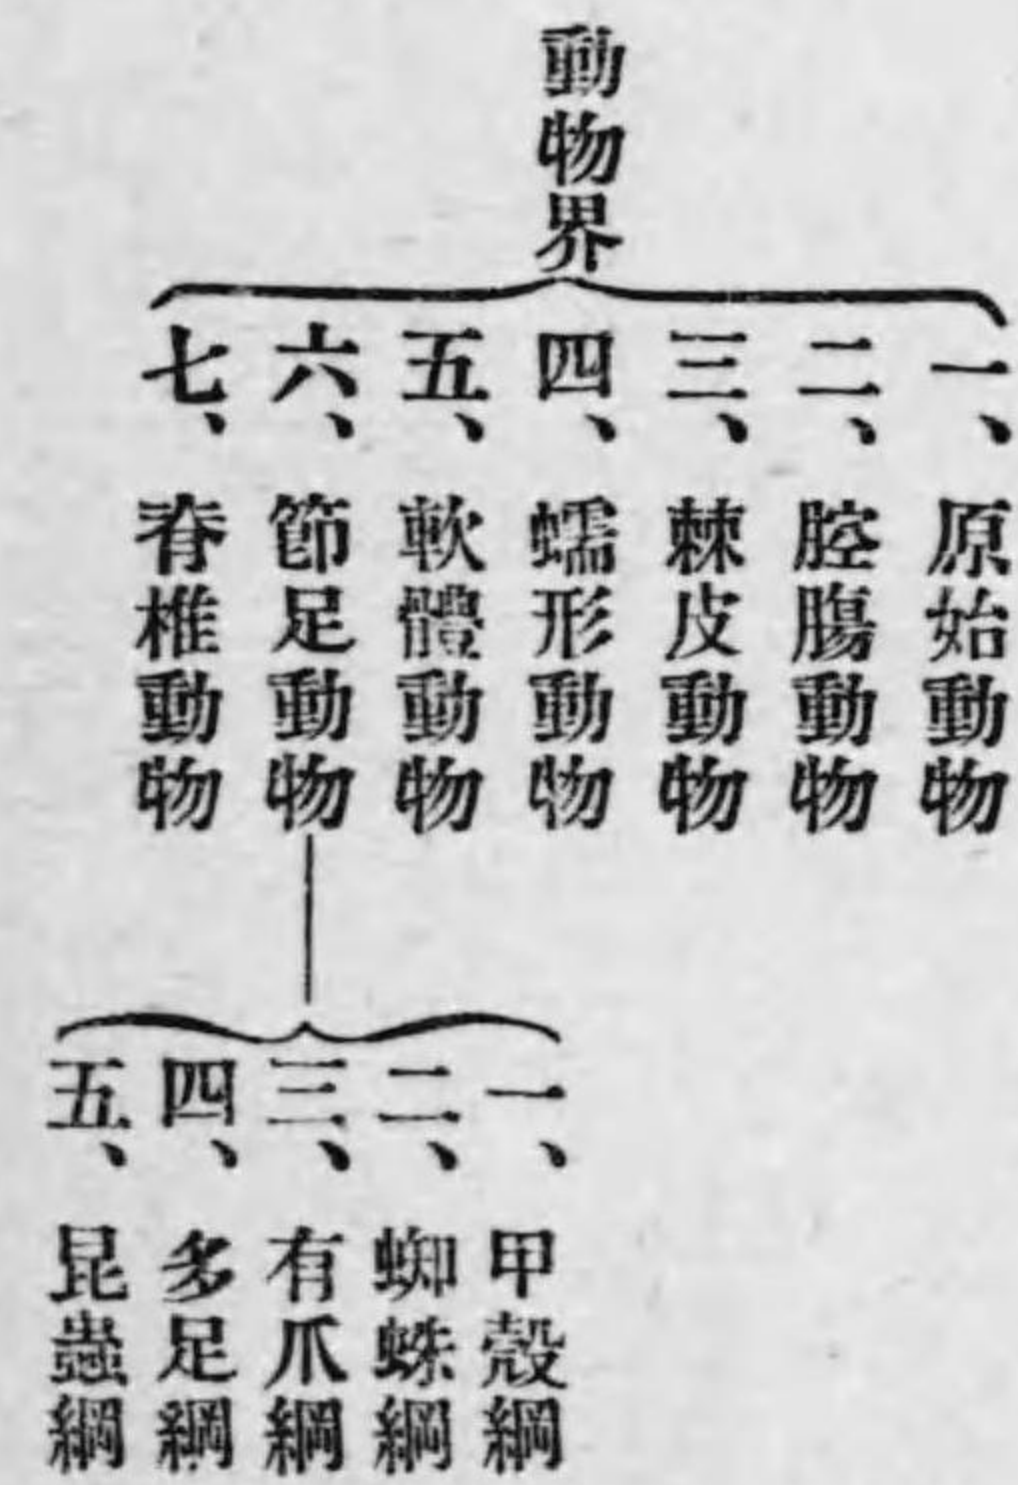 動物界
一、原始動物
二、腔腸動物
三、棘皮動物
四、蠕形動物
五、軟體動物
六、節足動物
七、脊椎動物
一、甲殼綱
二、蜘蛛綱
三、有爪綱
四、多足綱
五、昆蟲綱